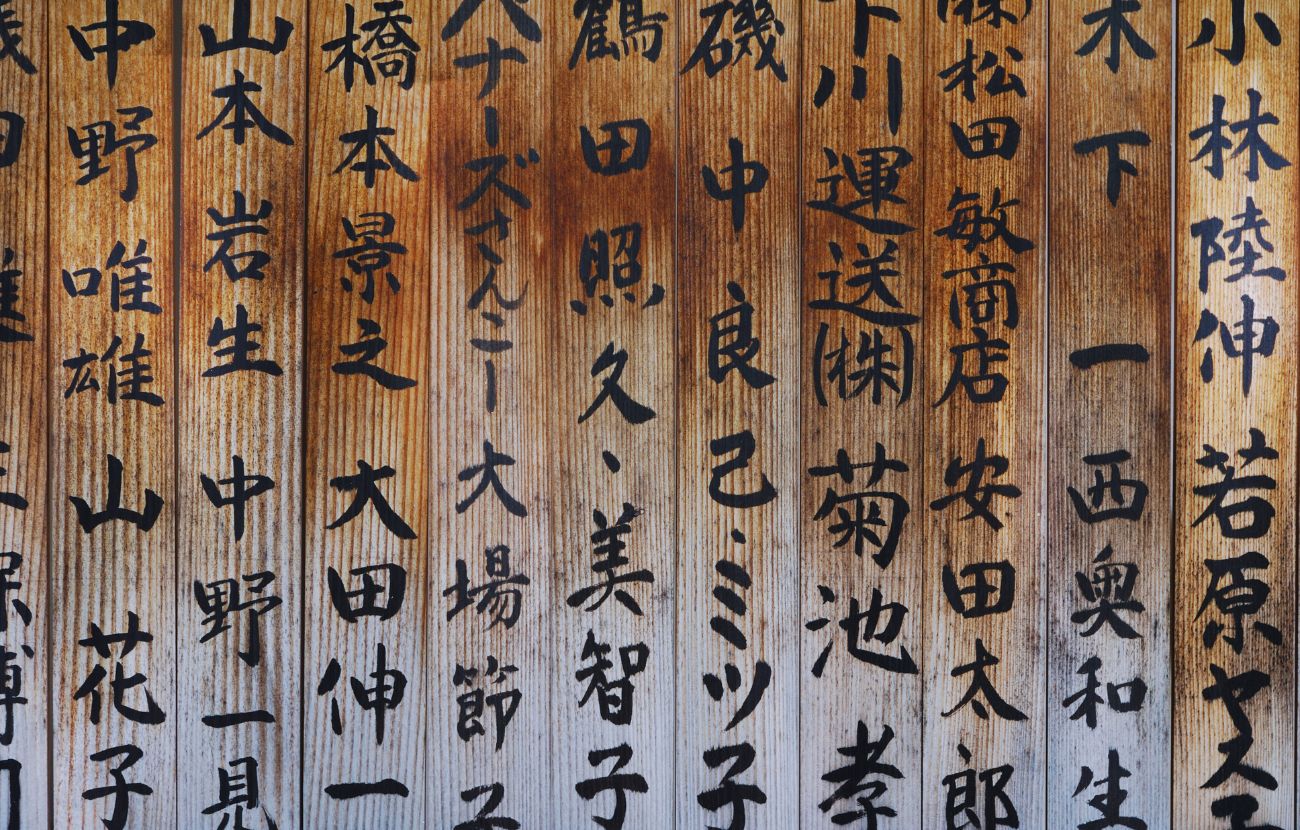 小林陸伸 若原ヤス子
木下 一 西奥和生
㈱松田敏商店 安田太郎
下川運送㈱ 菊池 孝
磯 中良己・ミツ子
鶴田照久、美智子
ナーズさんこー 大場節子
橋本景之 大田伸一
山本岩生 中野一見
中野唯雄 山 花子
田